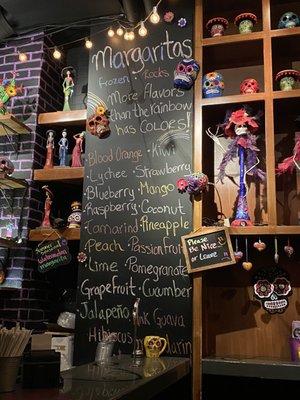 Margaritas
Frozen Rocks
More Flavors
than the Rainbow
has Colors!
Blood Orange • Kiwi
Lychee • Strawberry
Blueberry • Mango
Raspberry • Coconut
Tamarind • Pineapple
Peach • Passionfruit
Lime • Pomegranate
Grapefruit • Cucumber
Jalapeño Pink Guava
Hibiscus Mandarin
Please Be
Nice
or Leave
Watermelon
Margarita